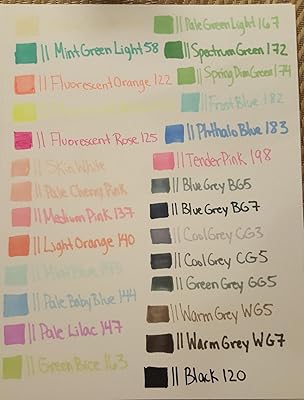 || Mint Green Light 58
|| Fluorescent Orange 122
|| Fluorescent Rose 125
|| Skin White
|| Pale Cherry Pink
|| Medium Pink 137
|| Light Orange 140
|| Pale Baby Blue 144
|| Pale Lilac 147
|| Green Bice 163
|| Pale Green Light 167
|| Spectrum Green 172
|| Spring Dim Green 174
|| Frost Blue 182
|| Phthalo Blue 183
|| Tender Pink 198
|| Blue Grey BG5
|| Blue Grey BG7
|| Cool Grey CG3
|| Cool Grey CG5
|| Green Grey GG5
|| Warm Grey WG5
|| Warm Grey WG7
|| Black 120